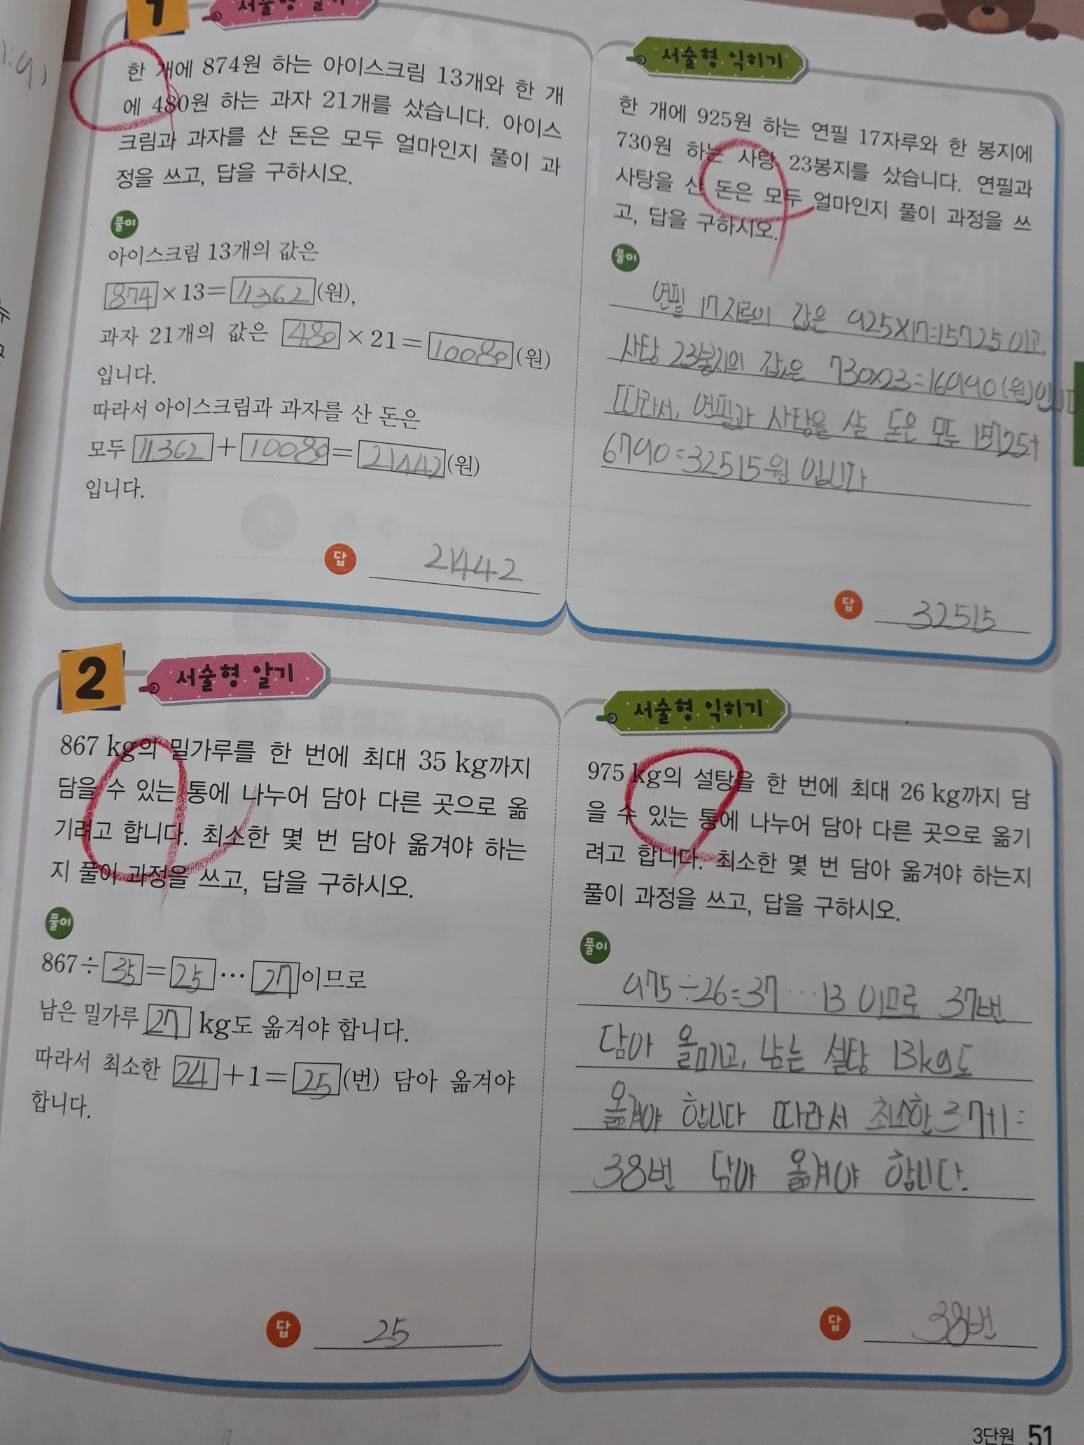 1
서술형 알기
한 개에 874원 하는 아이스크림 13개와 한 개
에 480원 하는 과자 21개를 샀습니다. 아이스
크림과 과자를 산 돈은 모두 얼마인지 풀이 과
정을 쓰고, 답을 구하시오.
풀이
아이스크림 13개의 값은
874×13=11362(원),
과자 21개의 값은 480×21=10080(원)
입니다.
따라서 아이스크림과 과자를 산 돈은
모두 11362+10080=21442(원)
입니다.
답 21442
서술형 익히기
한 개에 925원 하는 연필 17자루와 한 봉지에
730원 하는 사탕 23봉지를 샀습니다. 연필과
사탕을 산 돈은 모두 얼마인지 풀이 과정을 쓰
고, 답을 구하시오.
풀이
연필 17자루의 값은 925×17=15725이고,
사탕 23봉지의 값은 730×23=16790(원)입니다
따라서, 연필과 사탕을 산 돈은 모두 15725+
6790=32515원 입니다
답 32515
2
서술형 알기
867 kg의 밀가루를 한 번에 최대 35 kg까지
담을 수 있는 통에 나누어 담아 다른 곳으로 옮
기려고 합니다. 최소한 몇 번 담아 옮겨야 하는
지 풀이 과정을 쓰고, 답을 구하시오.
풀이
867÷35=25…27이므로
남은 밀가루 27 kg도 옮겨야 합니다.
따라서 최소한 24+1=25(번) 담아 옮겨야
합니다.
답 25
서술형 익히기
975 kg의 설탕을 한 번에 최대 26 kg까지 담
을 수 있는 통에 나누어 담아 다른 곳으로 옮기
려고 합니다. 최소한 몇 번 담아 옮겨야 하는지
풀이 과정을 쓰고, 답을 구하시오.
풀이
975÷26=37…13 이므로 37번
담아 옮기고, 남는 설탕 13kg도
옮겨야 합니다 따라서 최소한 37+1=
38번 담아 옮겨야 합니다.
답 38번
3단원 51